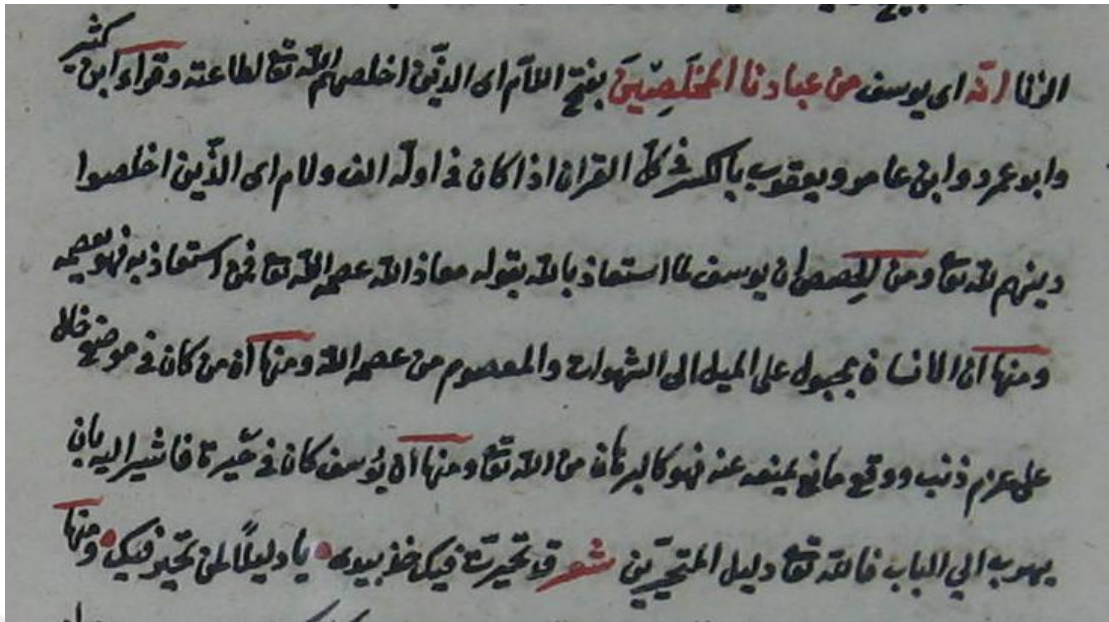 الزنا انّه اى يوسف من عبادنا المخلَصِينَ بفتح اللام اى الذين اخلصهم الله تعا لطاعته وقراء ابن كثير
وابو عمرو وابن عامر ويعقوب بالكسر فى كلّ القران اذا كان فى اوله الف ولام اى الذّين اخلصوا
دينهم لله تعا ومن الحصص ان يوسف لما استعاذ بالله بقوله معاذ الله عصمه الله تعا فمن استعاذ به فهو يعصمه
ومنها ان الانسان مجبول على الميل الى الشهوات والمعصوم من عصمه الله ومنها ان من كان فى موضع خال
على عزم ذنب ووقع مانع يمنعه عنه فهو كالبرهان من الله تعا ومنها ان يُوسف كان فى حَيرة فاشير اليه بان
يهرب الى الباب فالله تعا دليل المتحيّرين شعر قد تحيرت فيك خذ بيدى يا دليلًا لمن تحيّر فيك ومنها